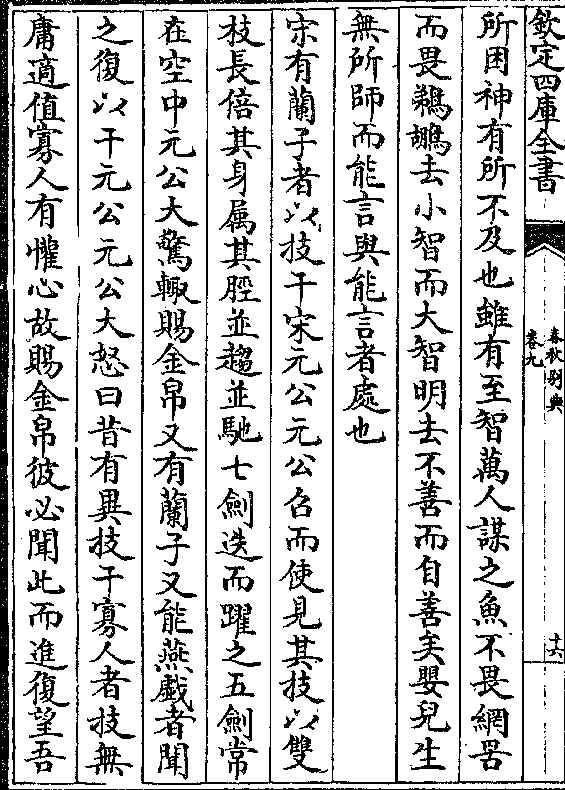 欽定四庫全書
春秋别典
卷九
十六
所困神有所不及也雖有至智萬人謀之魚不畏網罟
而畏鵜鶘去小智而大智明去不善而自善矣嬰兒生
無所師而能言與能言者處也
宋有蘭子者以技干宋元公元公召而使見其技以雙
枝長倍其身属其脛並趨並馳七劍迭而躍之五劍常
在空中元公大驚輙賜金帛又有蘭子又能燕戲者聞
之復以干元公元公大怒曰昔有異技干寡人者技無
庸適值寡人有懽心故賜金帛彼必聞此而進復望吾